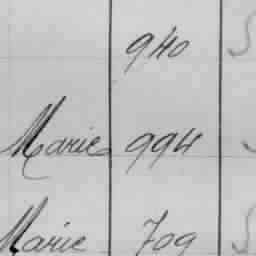 940
Marie 994
Marie 709